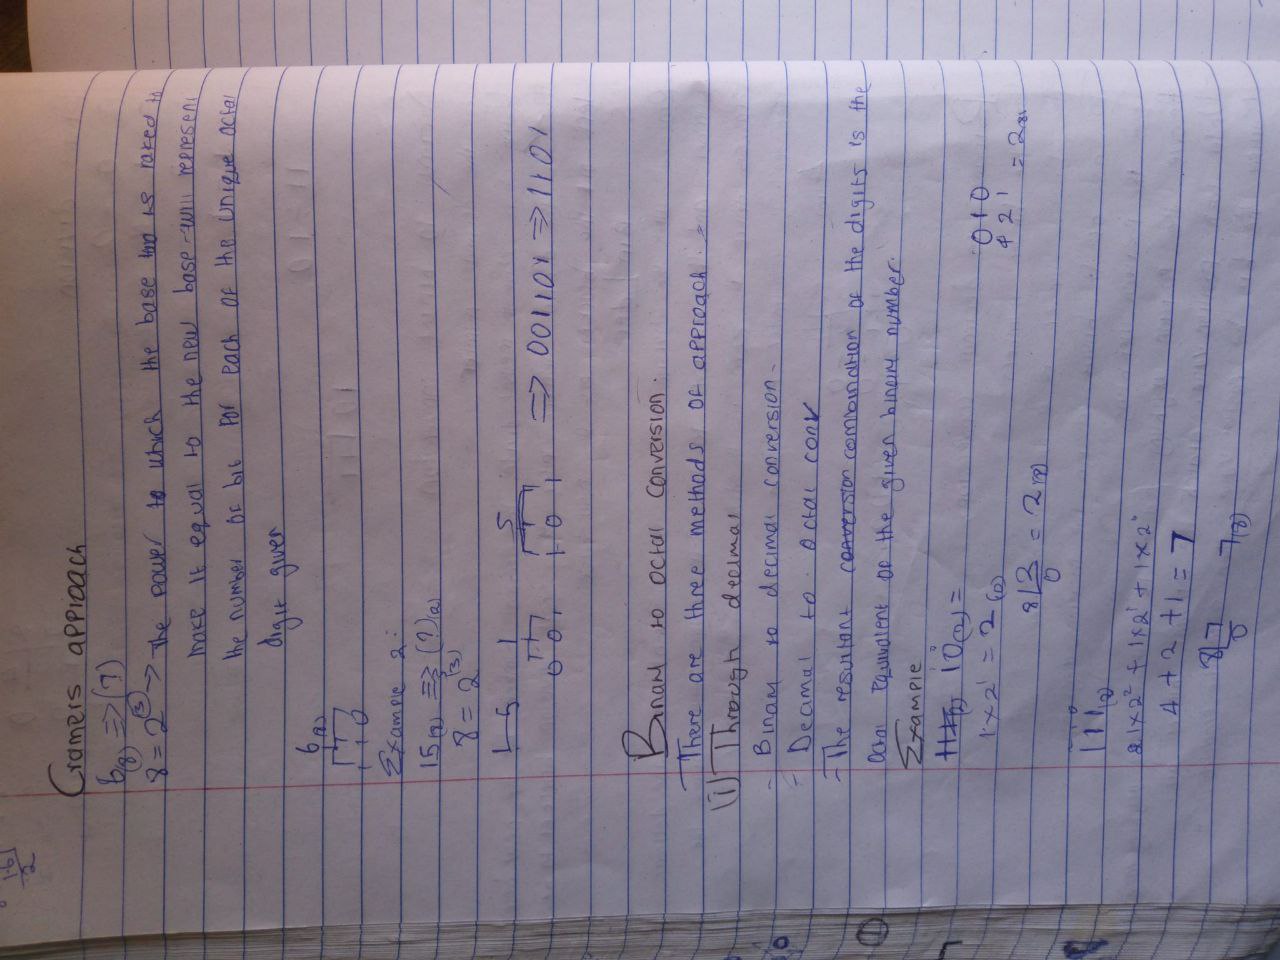 1·6
2
Cramers approach
6(8) => (?)
8 = 2(3) -> The power to which the base two is raked to
make it equal to the new base will represent
the number of bit for each of the unique octal
digit given
6(8)
1 1 0
Example 2:
15(8) => (?)(2)
8 = 2(3)
1 5 1 5
0 0 1 1 0 1 => 001101 => 1101
Binary to octal conversion.
There are three methods of approach.
(i) Through decimal
- Binary to decimal conversion.
- Decimal to octal conv
- The resultant conversion combination of the digits is the
octal equivalent of the given binary number.
Example
10(2) =
1 x 2¹ = 2(10)
8|2 = 2(8)
0
010
4 2 1 = 2(8)
111(2)
1x2² + 1x2¹ + 1x2⁰
4 + 2 + 1 = 7
8|7 7(8)
0